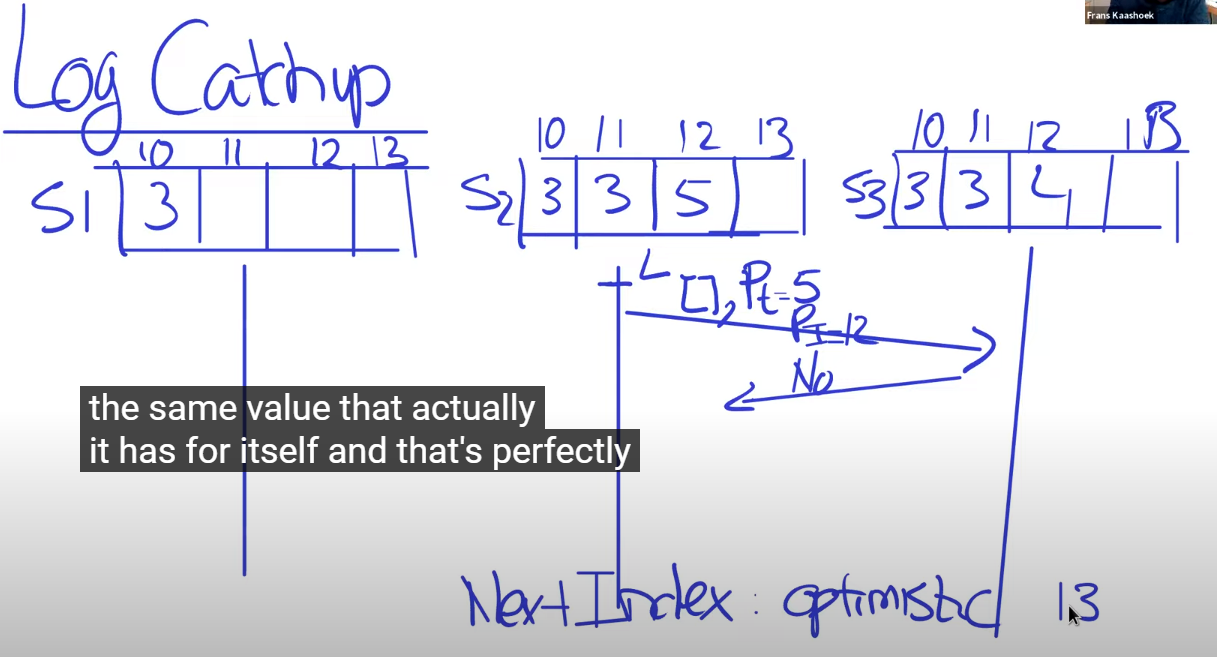 Frans Kaashoek
Log Catchup
10 11 12 13
S1 3
10 11 12 13
S2 3 3 5
10 11 12 13
S3 3 3 4
L [], Pt=5
PI=12
No
the same value that actually
it has for itself and that's perfectly
Next Index: optimistic 13